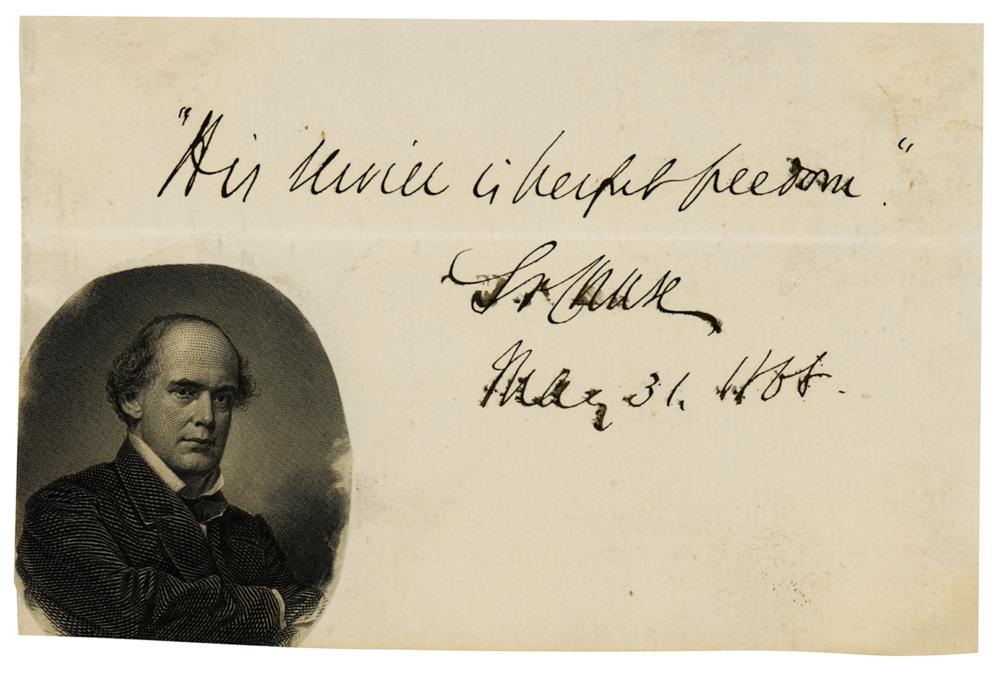 "His service is perfect freedom."
S P Chase
May 31. 1865.